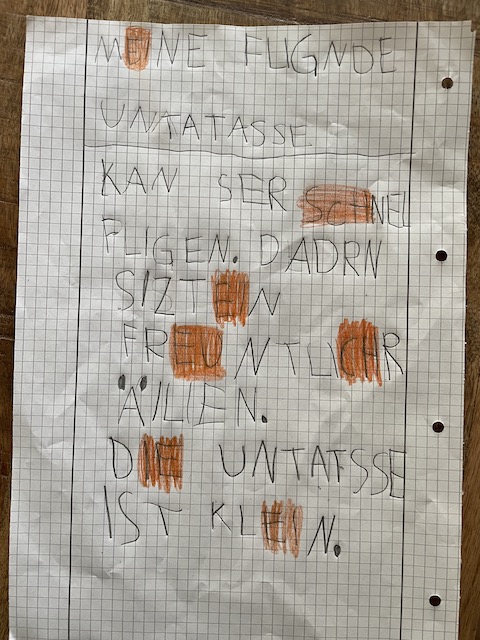 MEINE FLIGNDE
UNTATASSE
KAN SER SCHNEL
FLIGEN. DADRN
SIZT EIN
FREUNTLICHR
ÄJLIEN.
DIE UNTATSSE
IST KLEIN.